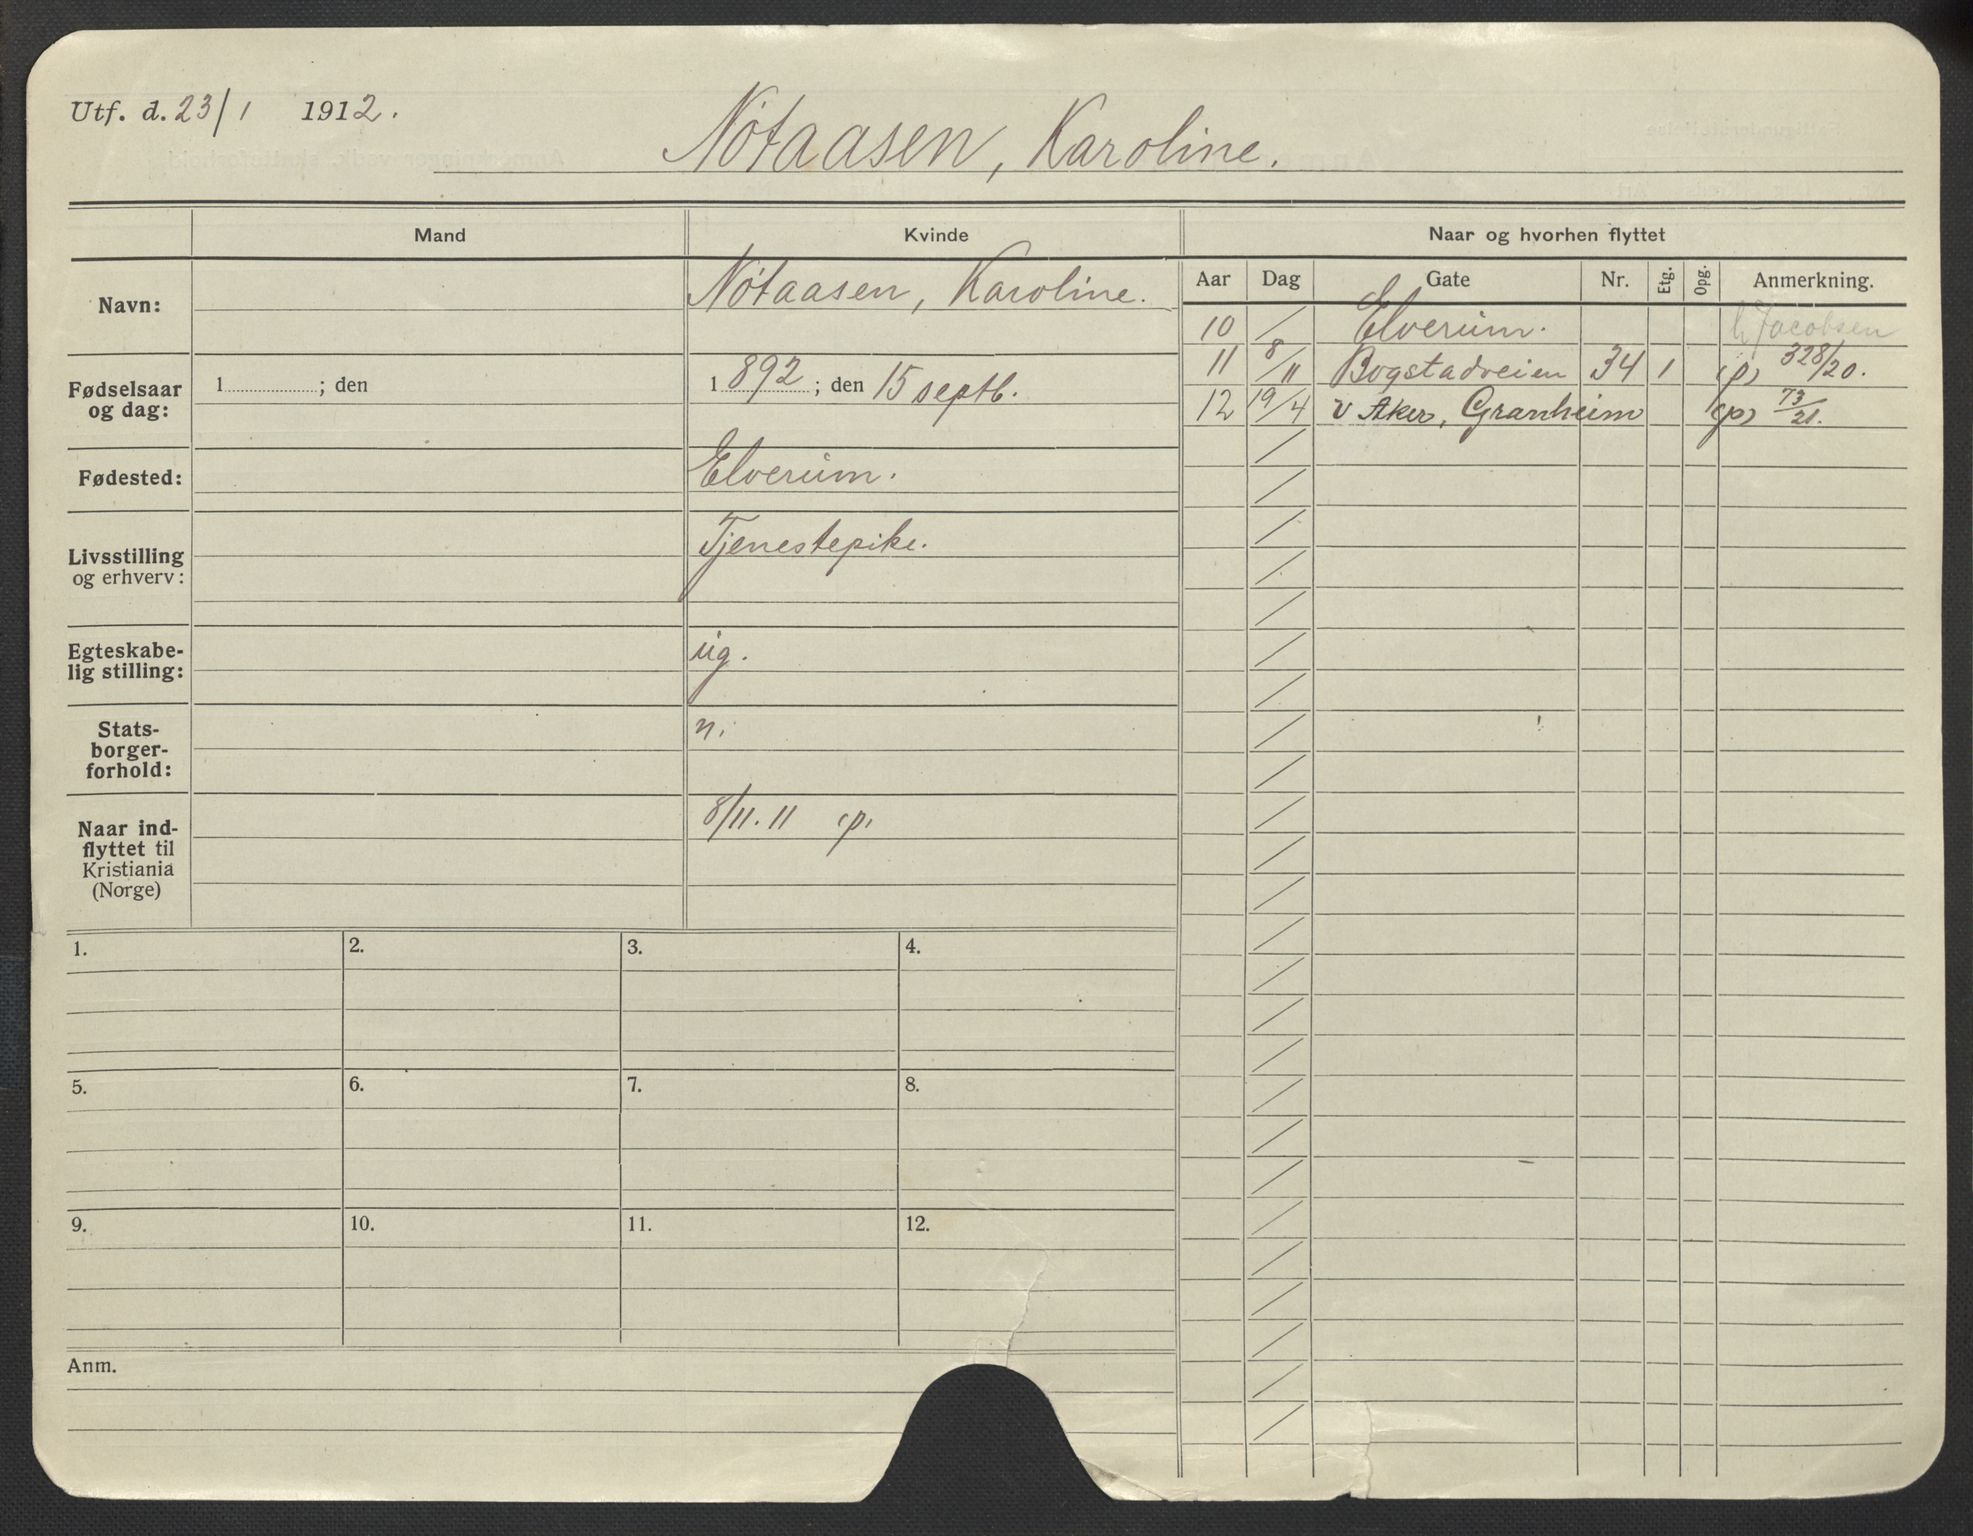 Utf. d. 23/1 1912.
Nøtaasen, Karoline.
Mand Kvinde Naar og hvorhen flyttet
Navn: Nøtaasen, Karoline.
Fødselsaar og dag: 1 ; den 1892 ; den 15 septb.
Fødested: Elverum.
Livsstilling og erhverv: Tjenestepike.
Egteskabe-
lig stilling: ug.
Stats-
borger-
forhold: n.
Naar ind-
flyttet til
Kristiania
(Norge) 8/11. 11 (p)
Aar Dag Gate Nr. Etg. Opg. Anmerkning.
10 / Elverum. h Jacobsen
11 8/11 Bogstadveien 34 1 (p) 328/20.
12 19/4 v Aker, Granheim (p) 73/21.
1. 2. 3. 4.
5. 6. 7. 8.
9. 10. 11. 12.
Anm.